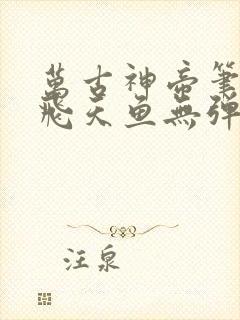 萬古神帝筆
飛天魚無彈
汪泉